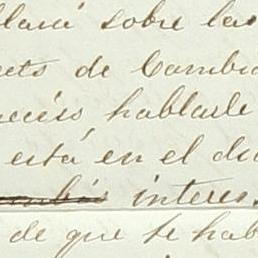 llará sobre las
ets de Cambio
hablarle
está en el dia
interes
de que te hab